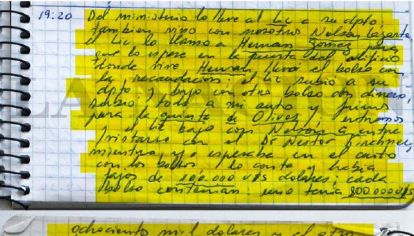 19:20 Del ministerio lo lleve al Lic a su dpto
tambien vino con nosotros Nelson Lazarte
el Lic lo llamo a Hernan Gomez para
que lo espere en la puerta del edificio
donde vive Hernan llevó el bolso con
la recaudacion; el Lic subio a su
dpto y bajo con otro bolso con dinero,
subio todo a mi auto y fuimos
para la quinta de Olivos, entramos
y el Lic bajo con Nelson a entre
vistarse con el Dr Nestor Kirchner,
mientras yo esperaba en el auto
con los bolsos y lo conte y habia
fajos de 100.000 U$S dolares cada
bolso contenian: uno tenia 800.000 U$S
ochociento mil dolares y el otro
LA NACION